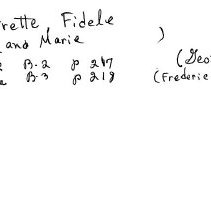 rrette, Fidele
and Marie )
B.2 p 217 (Geo
e B.3 p 218 (Frederic